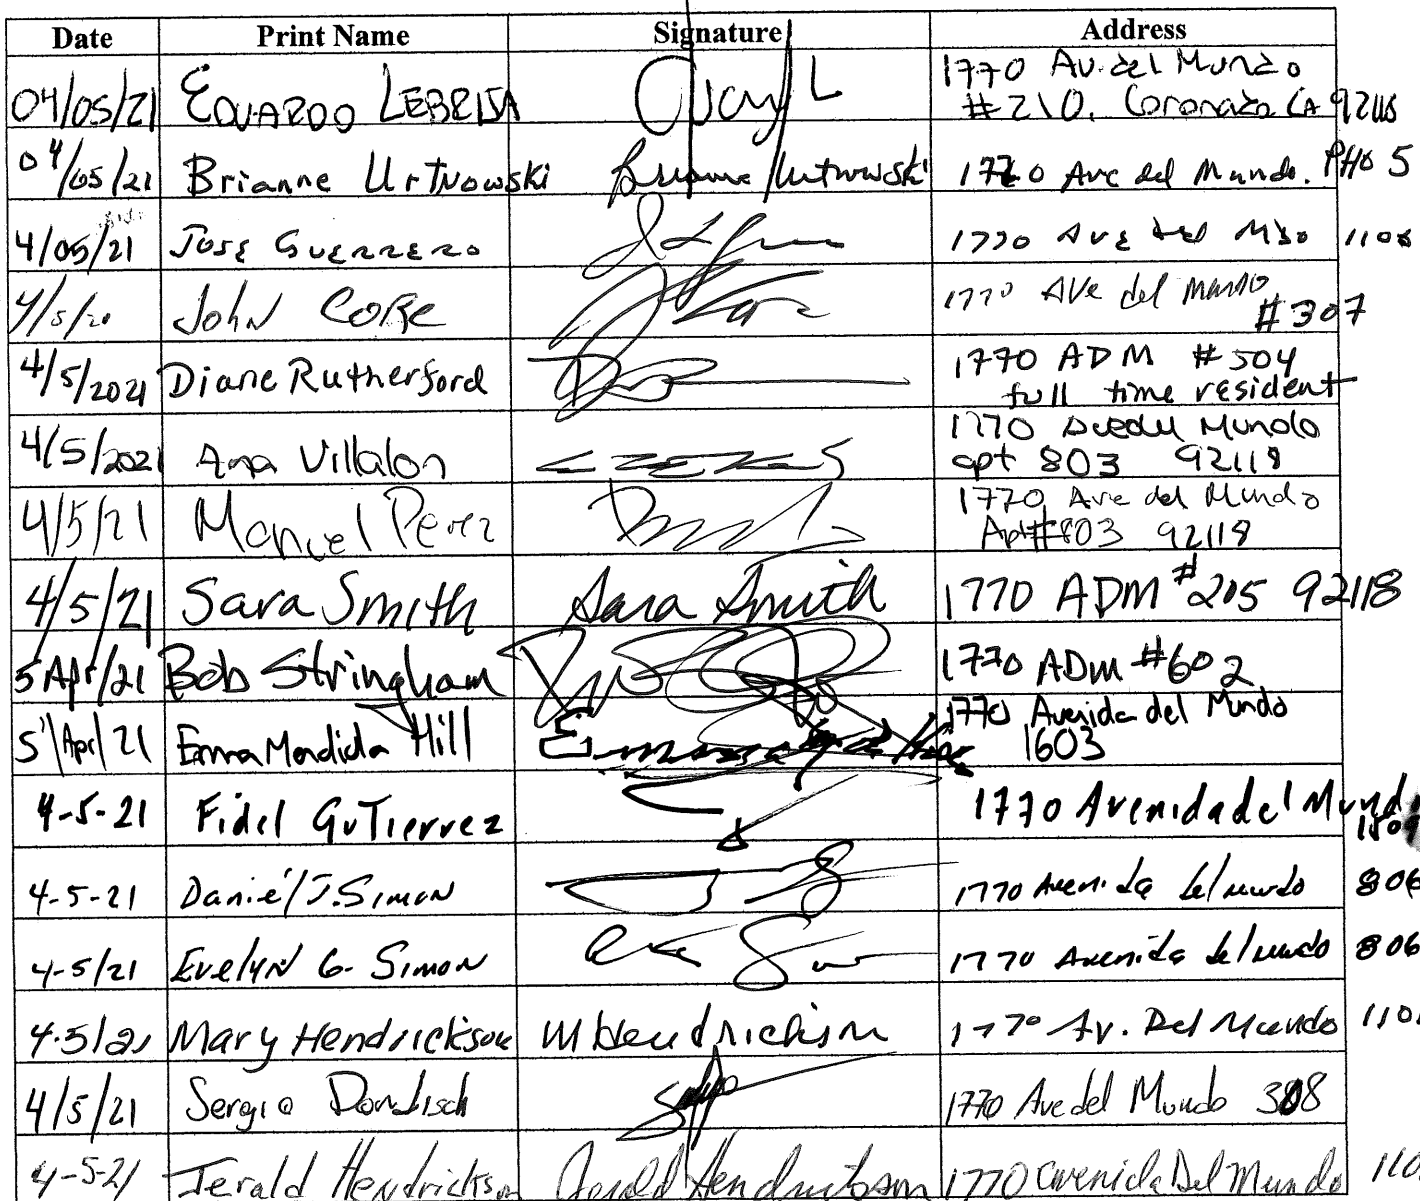 Date Print Name Signature Address
04/05/21 EDUARDO LEBRIJA 1770 Av. del Mundo
#210. Coronado CA 92118
04/05/21 Brianne UrTNowski Brianne Urtnowski 1770 Ave del Mundo. PH05
4/05/21 JOSE GUERRERO 1770 AVE del MDO 1106
4/5/20 John Core 1770 AVe del mundo
#307
4/5/2021 Diane Rutherford 1770 ADM #504
full time resident
4/5/2021 Ana Villalon 1770 Avedel Mundo
apt 803 92118
4/5/21 Manuel Perez 1770 Ave del Mundo
Apt#803 92118
4/5/21 Sara Smith Sara Smith 1770 ADM #205 92118
5 Apr/21 Bob Stringham 1770 ADM #602
5 Apr 21 Emma Mondida Hill 1770 Avenida del Mundo
1603
4-5-21 Fidel GuTierrez 1770 Avenida del Mund
4-5-21 Daniel J. Simon 1770 Avenida del mundo 806
4-5/21 Evelyn G. Simon 1770 Avenida del mundo 806
4.5/21 Mary Hendrickson M Hendrickson 1770 Av. Del Mundo
4/5/21 Sergio Dondisch 1770 Ave del Mundo 308
4-5-21 Jerald Hendrickson Jerald Hendrickson 1770 Avenida Del Mundo